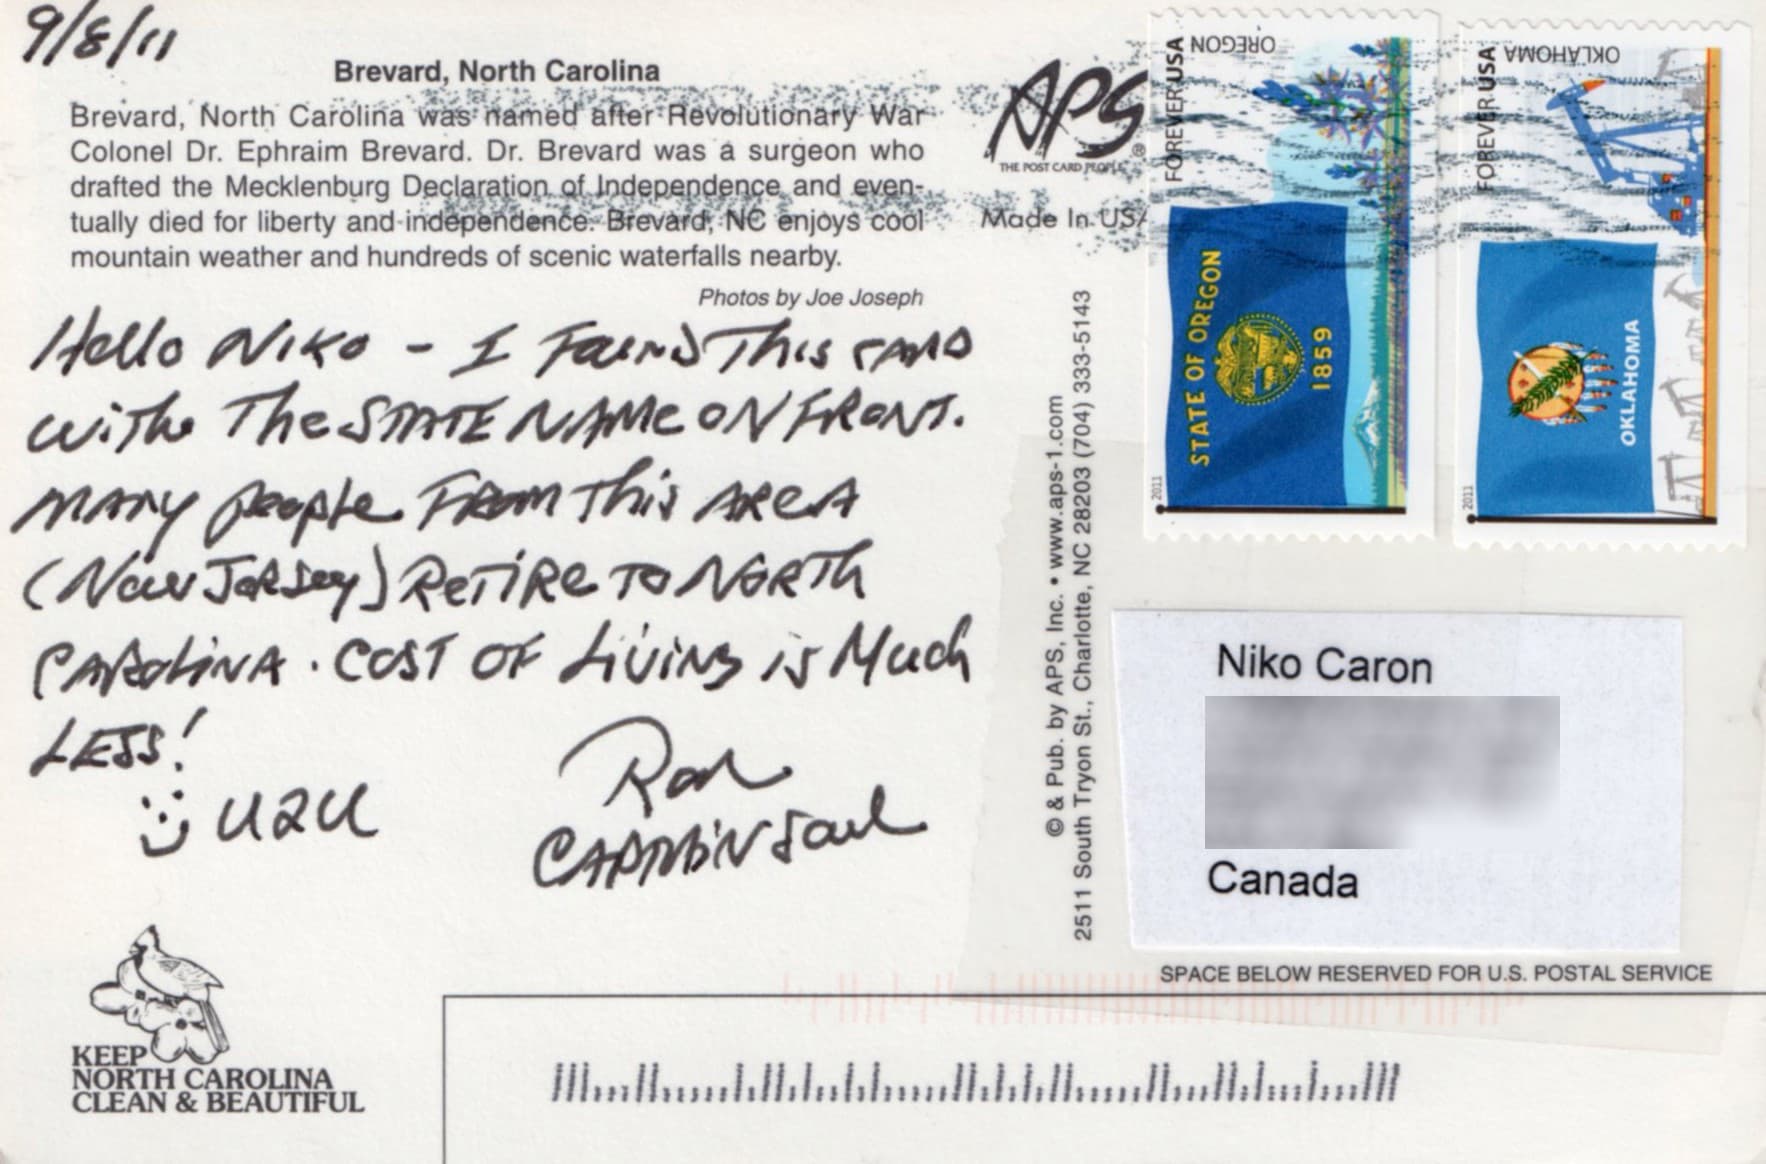 9/8/11
Brevard, North Carolina
Brevard, North Carolina was named after Revolutionary War
Colonel Dr. Ephraim Brevard. Dr. Brevard was a surgeon who
drafted the Mecklenburg Declaration of Independence and even-
tually died for liberty and independence. Brevard, NC enjoys cool
mountain weather and hundreds of scenic waterfalls nearby.
Photos by Joe Joseph
Hello Niko - I Found This card
with The STATE NAME ON FRONT.
MANY people FROM This AREA
(New Jersey) RETIRE TO NORTH
CAROLINA. COST OF Living is Much
LESS!
U2U
Ron
CARDBINSoul
KEEP
NORTH CAROLINA
CLEAN & BEAUTIFUL
APS®
THE POST CARD PEOPLE
Made In USA
© & Pub. by APS, Inc. • www.aps-1.com
2511 South Tryon St., Charlotte, NC 28203 (704) 333-5143
FOREVER USA
OREGON
STATE OF OREGON
1859
2011
FOREVER USA
OKLAHOMA
OKLAHOMA
2011
Niko Caron
Canada
SPACE BELOW RESERVED FOR U.S. POSTAL SERVICE